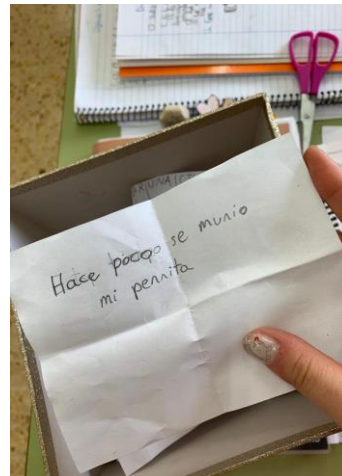 Hace pocqo se murio
mi perrita